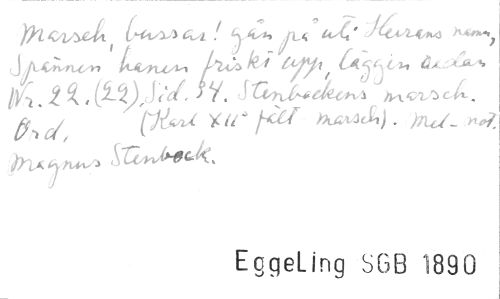 Marsch, bussar! gån på uti Herrans namn,
Spännen hanen friskt upp, läggen sedan
Nr. 22. (22), Sid. 34. Stenbockens marsch.
Ord. (Karl XIIs fält-marsch). Mel-not.
Magnus Stenbock.
EggeLing SGB 1890